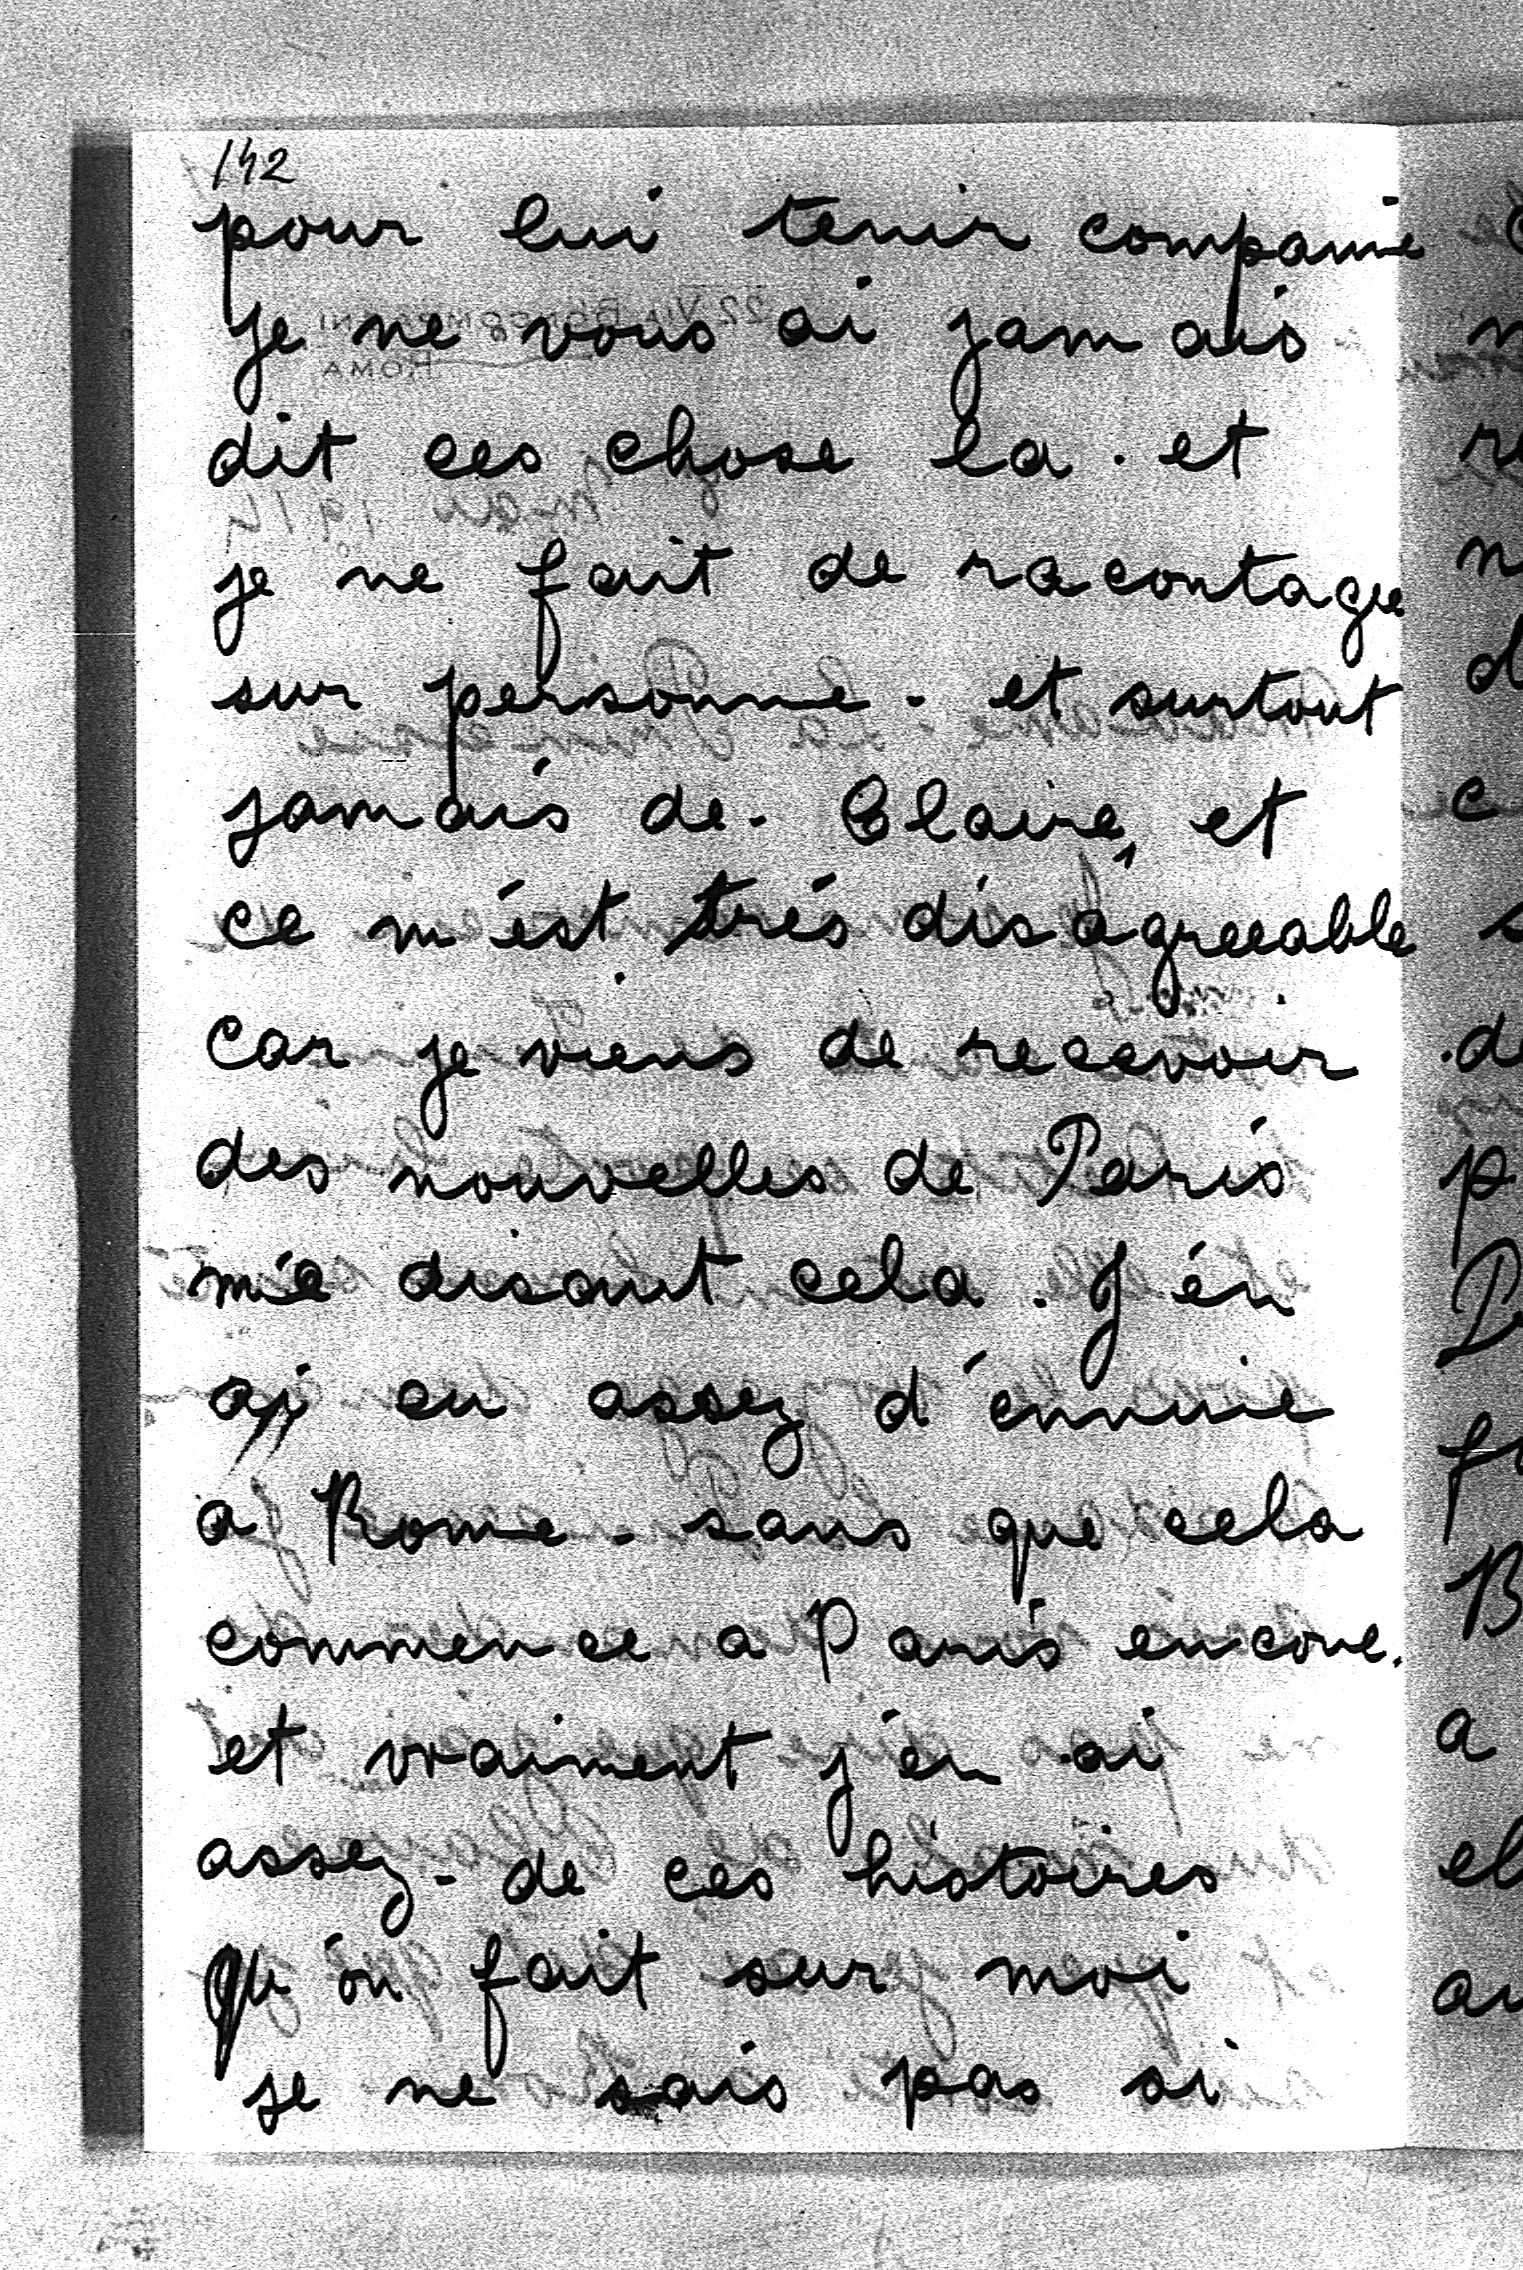 142
pour lui tenir companie
je ne vous ai jamais
dit ces chose la. et
je ne fait de racontage
sur personne - et surtout
jamais de. Claire, et
ce m'est trés disagreeable
Car je viens de recevoir
des nouvelles de Paris
me disant cela. J'én
ai eu assez d'ennuie
a Rome - sans que cela
commence a Paris encore.
et vraiment j'én ai
assez - de ces histoires
Qu'on fait sur moi
je ne sais pas si